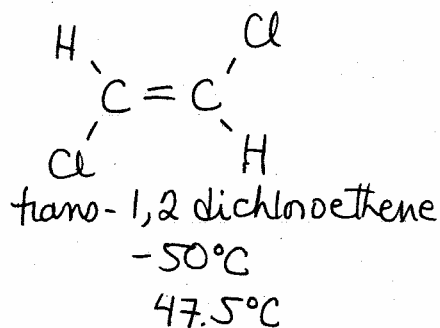 H Cl
C = C
Cl H
trans-1,2 dichloroethene
-50°C
47.5°C